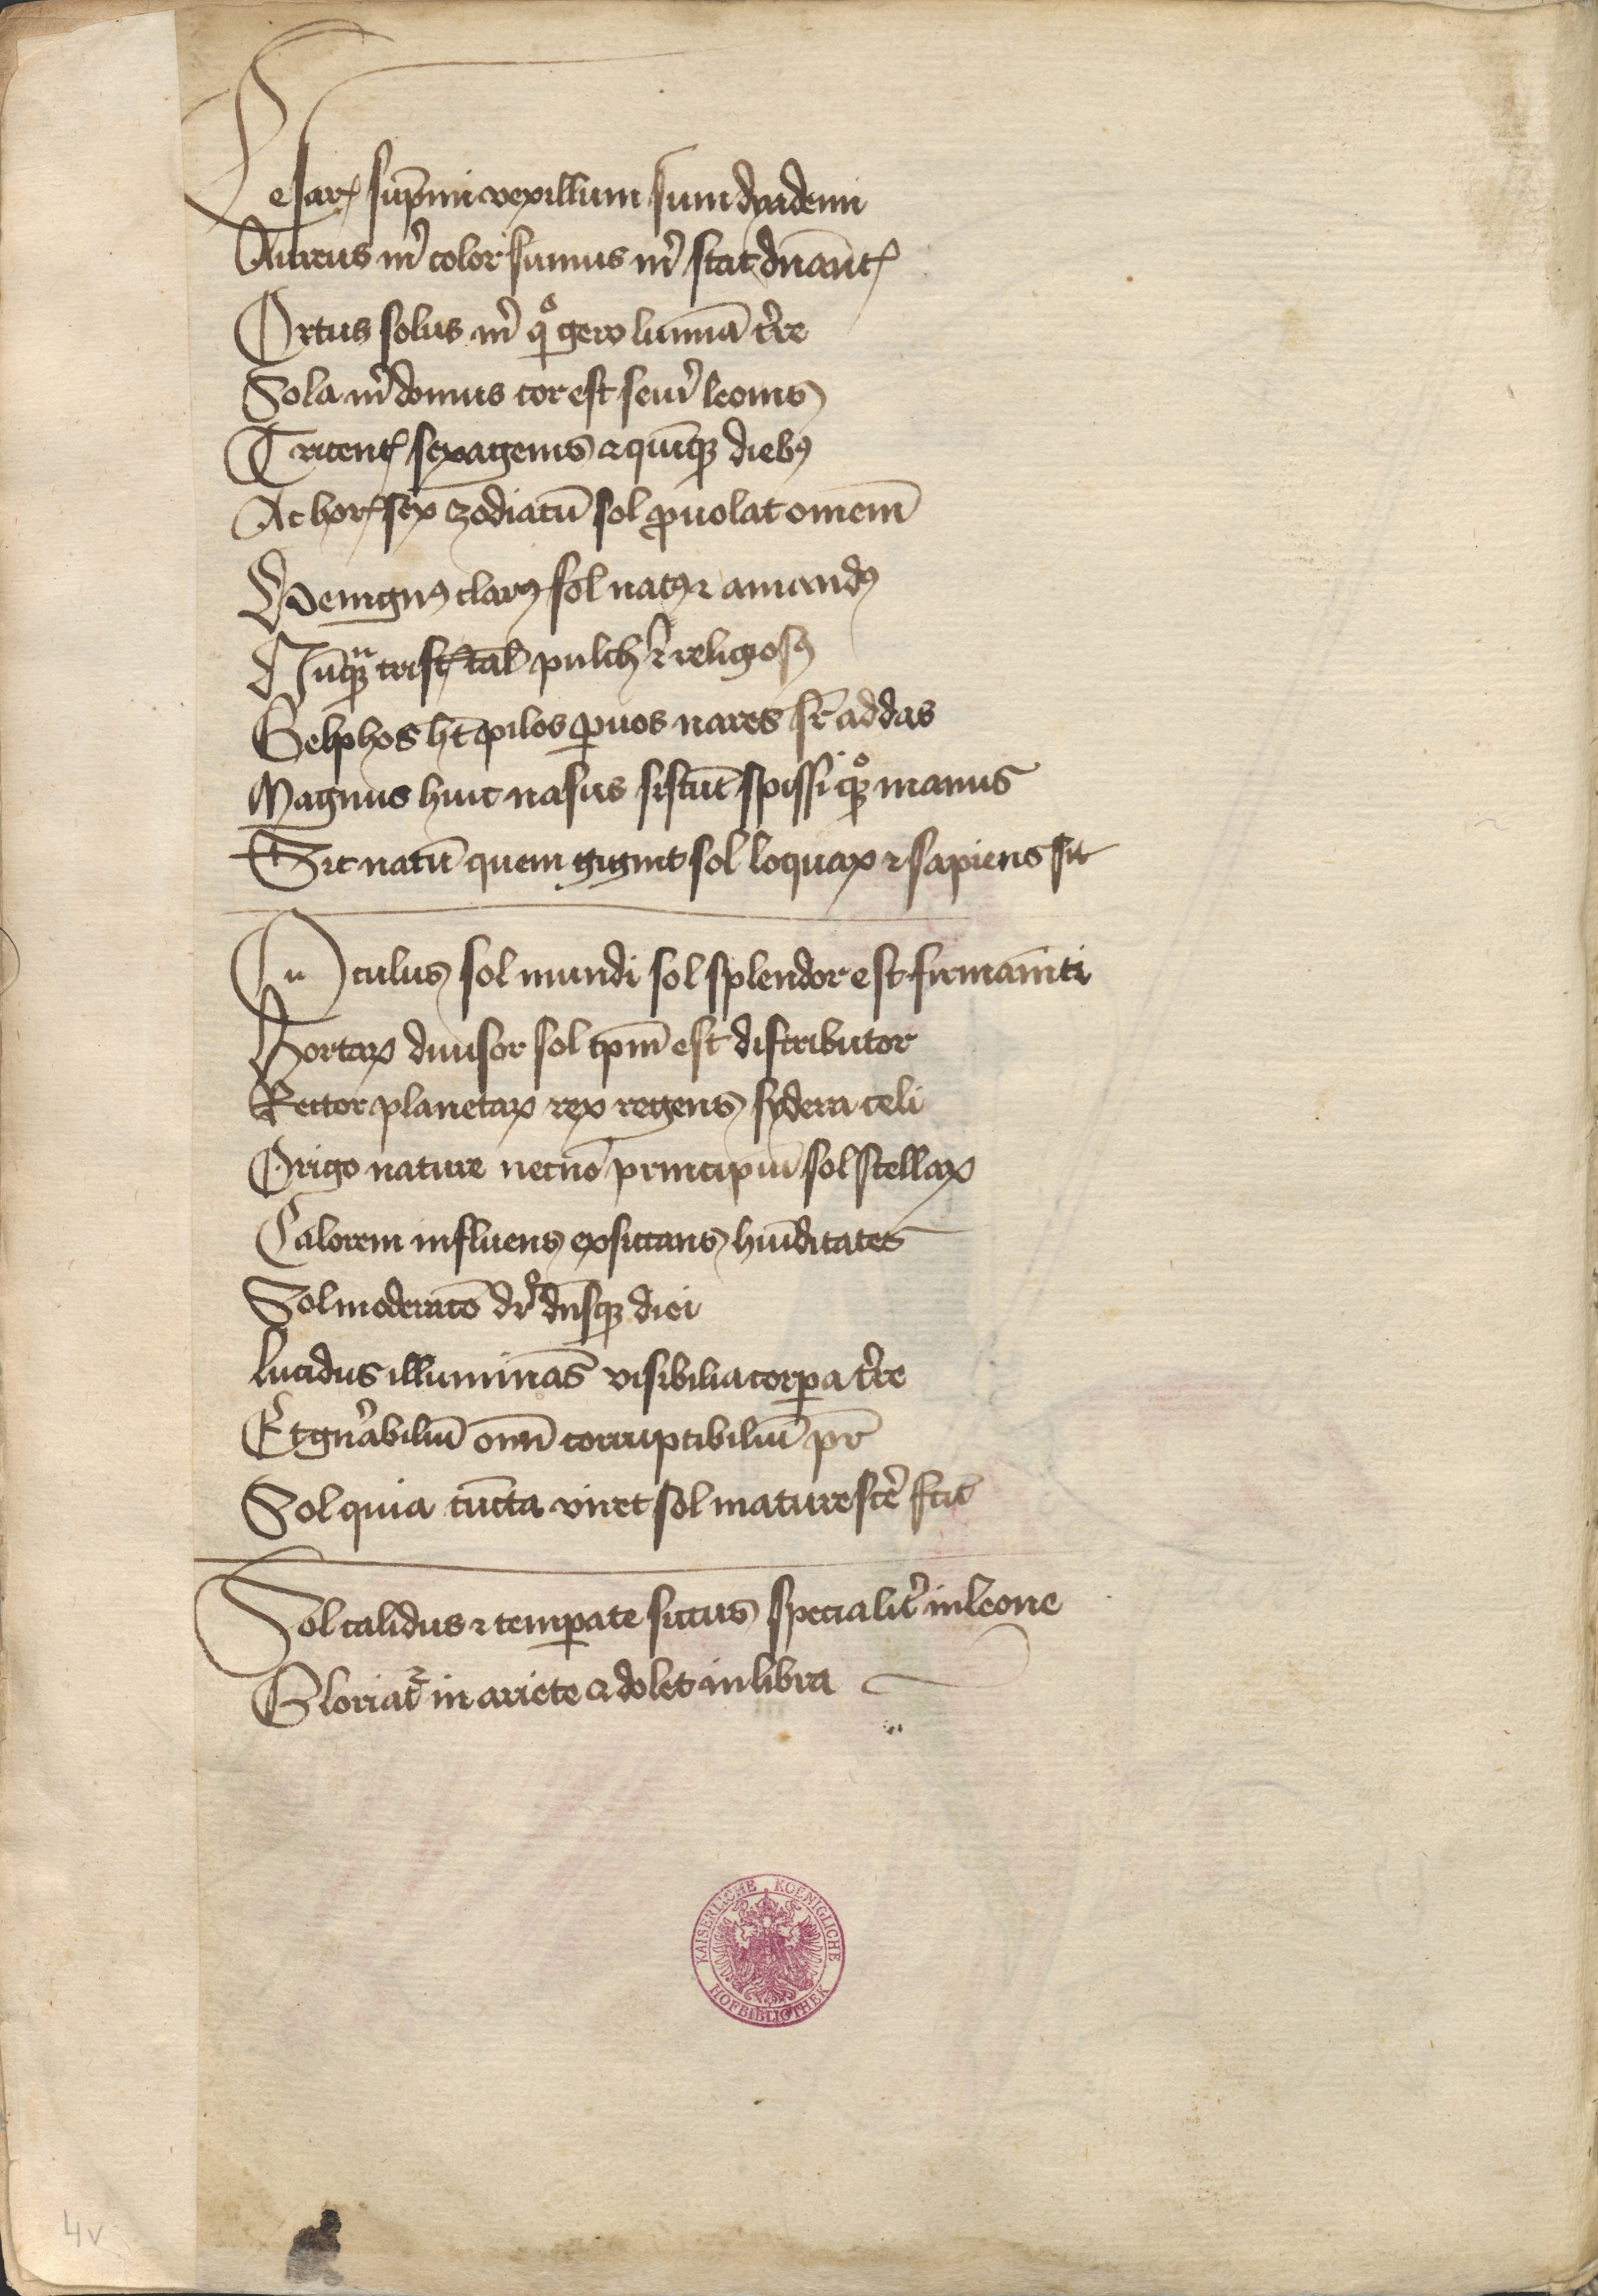 Cesarꝭ sup̄mi vexillum sum dyademi
Aureus m̉ color sumus m̉ stat dn̄antꝭ
Ortus solus m̉ qͦ gero lumīa t̉re
Sola m̉ domus cor est seuỉ leonis
Tricentꝭ sexagenis ⁊ quīqꝫ diebꝰ
Ac horꝭ sex zodiacū sol ꝓuolat omnem̄
Benignꝰ clarꝰ sol natꝰ ⁊ amandꝰ
Nūqꝫ tristꝭ pulch̉ ⁊ religiosꝰ
hn̄t pilos ꝑuos nares addas
Magnus huic nasus spissi qꝫ manus
Sic natū quem gignit sol loquax ⁊ sapiens sit
Oculus sol mundi sol splendor est firmam̄ti
Horaꝝ diuisor sol tp̄m est distributor
Rector planetaꝝ rex regens sydera celi
Origo nature necnō principiū sol stellaꝝ
Calorem influens exsiccans hūiditates
Sol moderatō dr̄ dn̄sqꝫ diei
Lucidus illuminās visibilia corꝑa t̉re
Et gn̉abiliū om̄ corruptibiliū pr̄
Sol quia cūcta viret sol maturescẻ fcit
Sol calidus ⁊ temꝑate siccus specialit̉ in leone
Gloriat᷑ in ariete ⁊ dolet in libra
KAISERLICHE KOENIGLICHE
HOFBIBLIOTHEK
4v